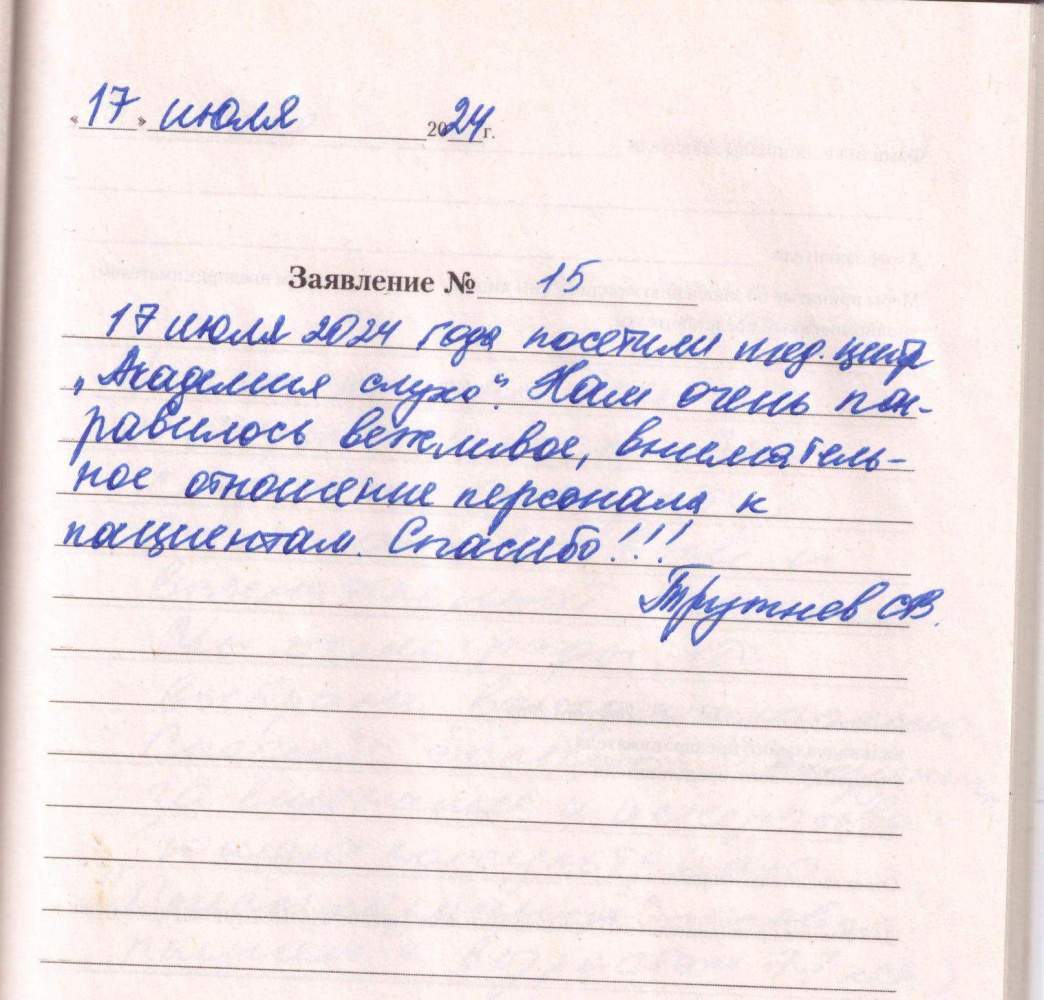 «17» июля 2024 г.
Заявление № 15
17 июля 2024 года посетили мед. центр
„Академия слуха". Нам очень пон-
равилось вежливое, вниматель-
ное отношение персонала к
пациентам. Спасибо!!!
Трутнев СВ.